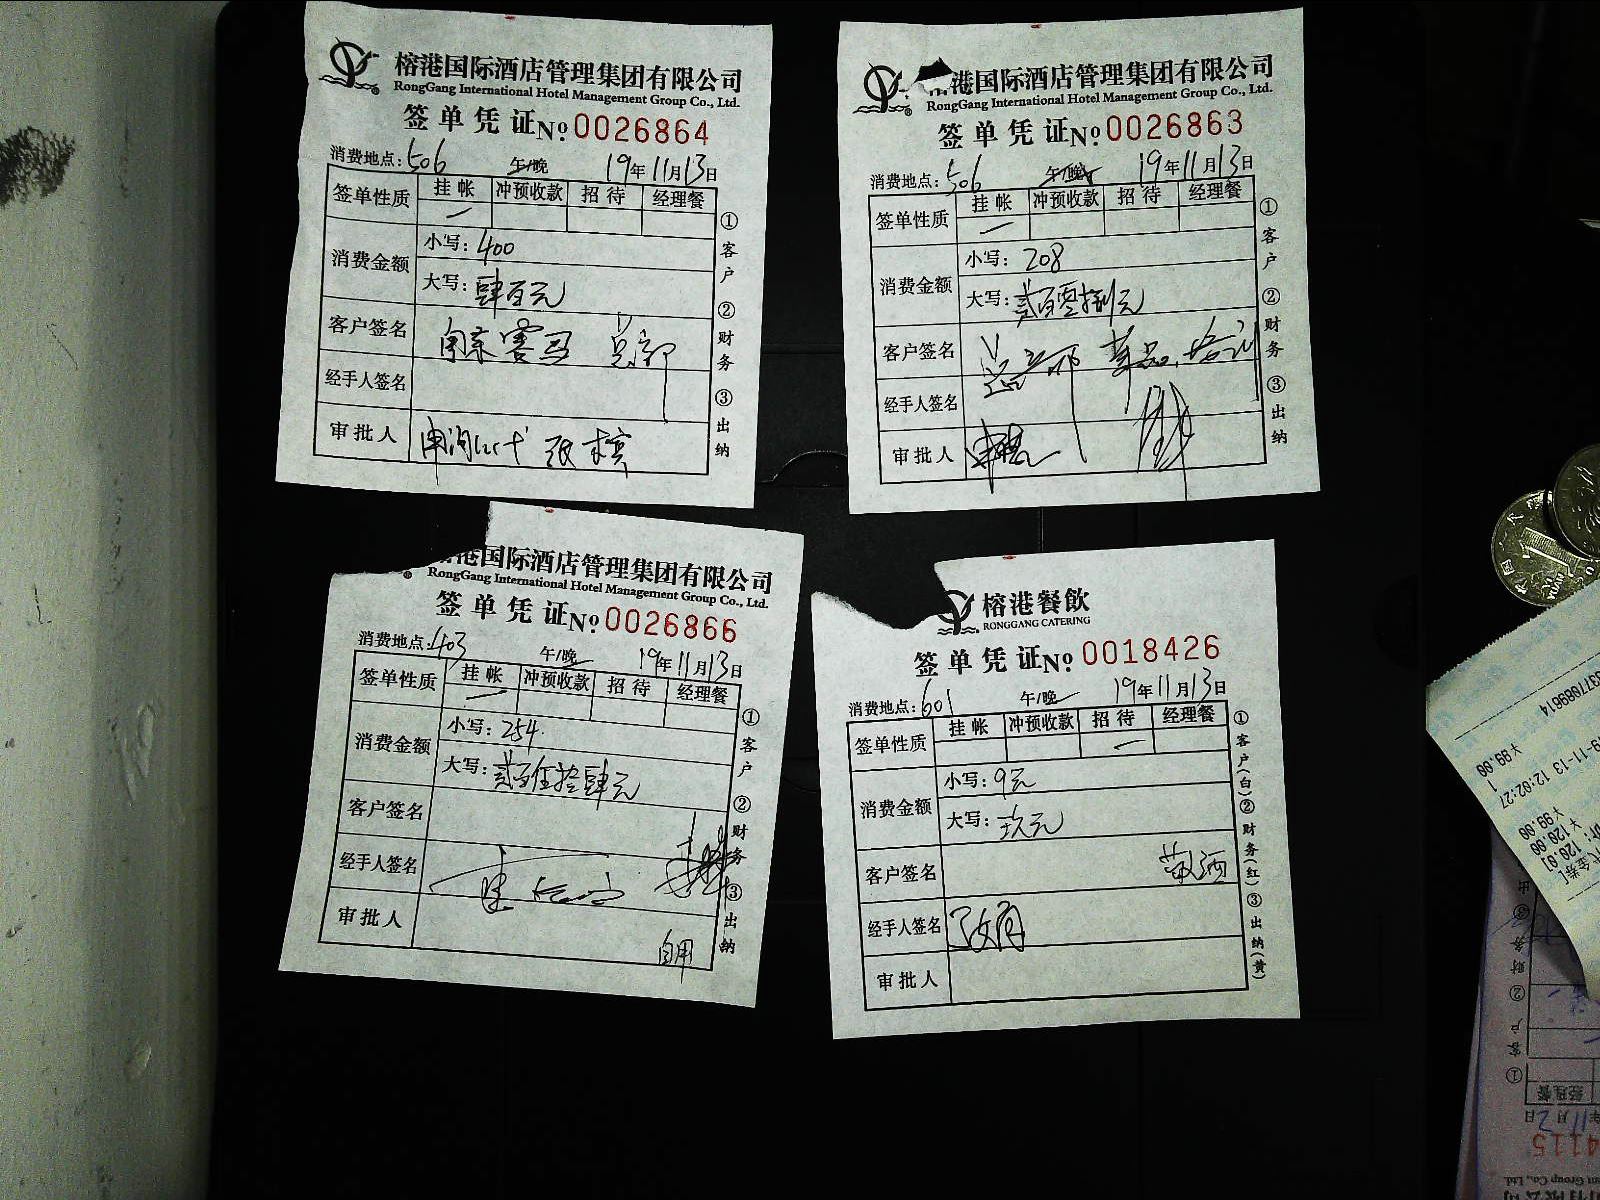 榕港国际酒店管理集团有限公司
RongGang International Hotel Management Group Co., Ltd.
签单凭证 No. 0026864
消费地点:506 午/晚 19年11月13日
签单性质 挂帐 冲预收款 招待 经理餐
消费金额 小写:400
大写:肆百元
客户签名 总部
经手人签名
审批人
①客户 ②财务 ③出纳
港国际酒店管理集团有限公司
RongGang International Hotel Management Group Co., Ltd.
签单凭证 No. 0026863
消费地点:506 午/晚 19年11月13日
签单性质 挂帐 冲预收款 招待 经理餐
消费金额 小写:208
大写:贰百零捌元
客户签名 菜品培训
经手人签名
审批人
①客户 ②财务 ③出纳
港国际酒店管理集团有限公司
RongGang International Hotel Management Group Co., Ltd.
签单凭证 No. 0026866
消费地点:403 午/晚 19年11月13日
签单性质 挂帐 冲预收款 招待 经理餐
消费金额 小写:254.
大写:贰百伍拾肆元
客户签名
经手人签名
审批人 自用
①客户 ②财务 ③出纳
榕港餐飲
RONGGANG CATERING
签单凭证 No. 0018426
消费地点:601 午/晚 19年11月13日
签单性质 挂帐 冲预收款 招待 经理餐
消费金额 小写:9元
大写:玖元
客户签名 敬酒
经手人签名
审批人
①客户(白)②财务(红)③出纳(黄)
337089614
￥99.00
1
9-11-13 12:02:27
￥99.00
￥120.00
120.01
代金券